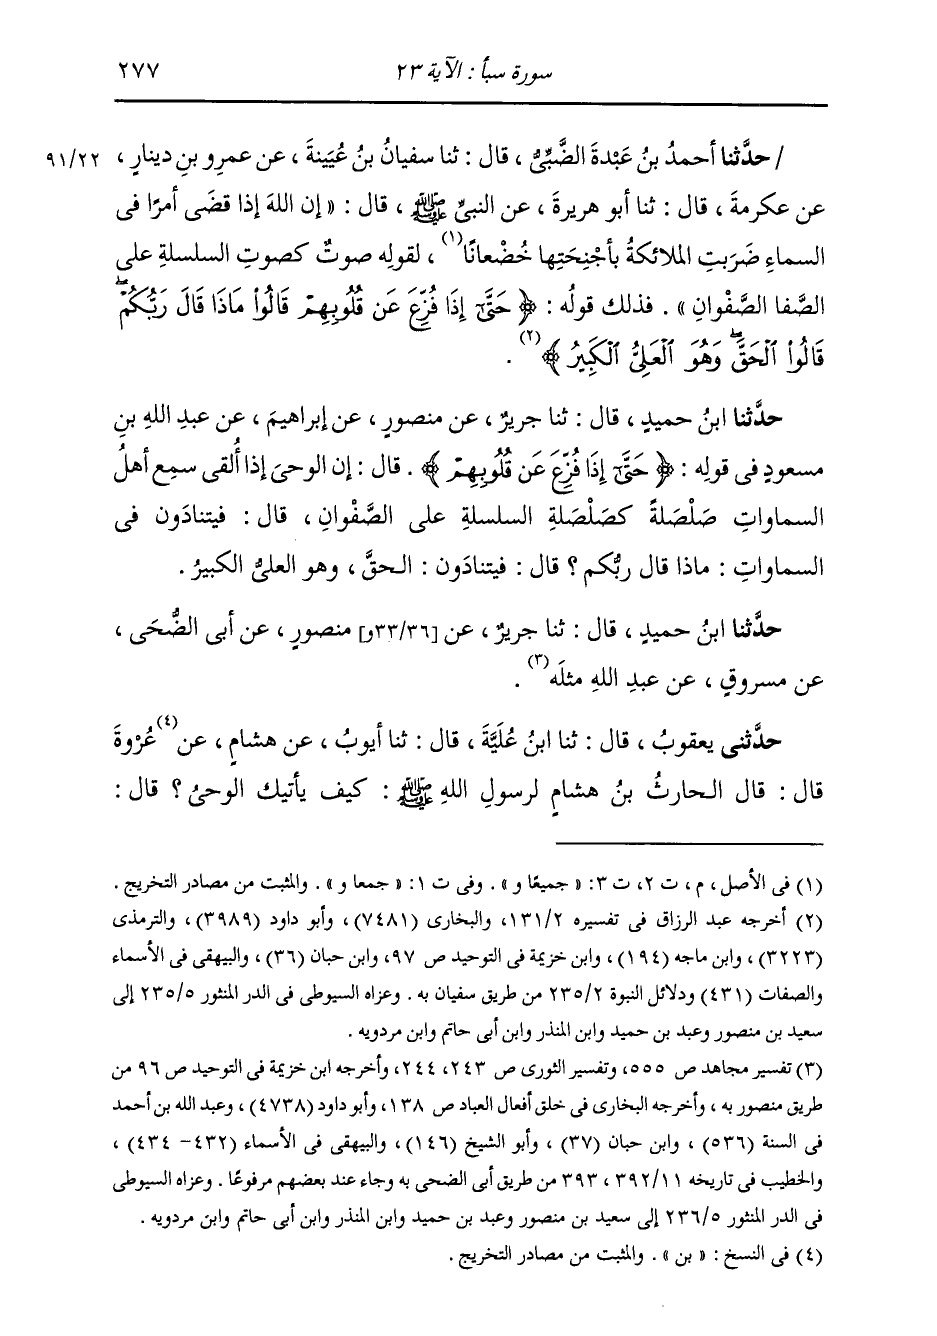 سورة سبأ : الآية ٢٣ ٢٧٧
/ حدَّثنا أحمدُ بنُ عَبْدةَ الضَّبِّىُّ ، قال : ثنا سفيانُ بنُ عُيَينةَ ، عن عمرِو بنِ دينارٍ ، ٩١/٢٢
عن عكرمةَ ، قال : ثنا أبو هريرةَ ، عن النبىِّ ﷺ ، قال : « إن اللهَ إذا قضَى أمرًا فى
السماءِ ضَرَبتِ الملائكةُ بأجْنِحَتِها خُضْعانًا(١) ، لقولِه صوتٌ كصوتِ السلسلةِ على
الصَّفا الصَّفْوانِ » . فذلك قولُه : ﴿ حَتَّىٰٓ إِذَا فُزِّعَ عَن قُلُوبِهِمْ قَالُوا۟ مَاذَا قَالَ رَبُّكُمْ ۖ
قَالُوا۟ ٱلْحَقَّ ۖ وَهُوَ ٱلْعَلِىُّ ٱلْكَبِيرُ ﴾(٢) .
حدَّثنا ابنُ حميدٍ ، قال : ثنا جريرٌ ، عن منصورٍ ، عن إبراهيمَ ، عن عبدِ اللهِ بنِ
مسعودٍ فى قولِه : ﴿ حَتَّىٰٓ إِذَا فُزِّعَ عَن قُلُوبِهِمْ ﴾ . قال : إن الوحىَ إذا أُلقى سمِع أهلُ
السماواتِ صَلْصَلةً كصَلْصَلةِ السلسلةِ على الصَّفْوانِ ، قال : فيتنادَون فى
السماواتِ : ماذا قال ربُّكم ؟ قال : فيتنادَون : الحقَّ ، وهو العلىُّ الكبيرُ .
حدَّثنا ابنُ حميدٍ ، قال : ثنا جريرٌ ، عن [٣٣/٣٦و] منصورٍ ، عن أبى الضُّحَى ،
عن مسروقٍ ، عن عبدِ اللهِ مثلَه(٣) .
حدَّثنى يعقوبُ ، قال : ثنا ابنُ عُلَيَّةَ ، قال : ثنا أيوبُ ، عن هشامٍ ، عن(٤) عُرْوةَ
قال : قال الحارثُ بنُ هشامٍ لرسولِ اللهِ ﷺ : كيف يأتيك الوحىُ ؟ قال :
(١) فى الأصل ، م ، ت ٢، ت ٣: « جميعًا و » . وفى ت ١: « جمعا و » . والمثبت من مصادر التخريج .
(٢) أخرجه عبد الرزاق فى تفسيره ١٣١/٢، والبخارى (٧٤٨١) ، وأبو داود (٣٩٨٩) ، والترمذى
(٣٢٢٣) ، وابن ماجه (١٩٤) ، وابن خزيمة فى التوحيد ص ٩٧، وابن حبان (٣٦) ، والبيهقى فى الأسماء
والصفات (٤٣١) ودلائل النبوة ٢٣٥/٢ من طريق سفيان به . وعزاه السيوطى فى الدر المنثور ٢٣٥/٥ إلى
سعيد بن منصور وعبد بن حميد وابن المنذر وابن أبى حاتم وابن مردويه .
(٣) تفسير مجاهد ص ٥٥٥، وتفسير الثورى ص ٢٤٣، ٢٤٤، وأخرجه ابن خزيمة فى التوحيد ص ٩٦ من
طريق منصور به ، وأخرجه البخارى فى خلق أفعال العباد ص ١٣٨، وأبو داود (٤٧٣٨) ، وعبد الله بن أحمد
فى السنة (٥٣٦) ، وابن حبان (٣٧) ، وأبو الشيخ (١٤٦) ، والبيهقى فى الأسماء (٤٣٢- ٤٣٤) ،
والخطيب فى تاريخه ٣٩٢/١١ ، ٣٩٣ من طريق أبى الضحى به وجاء عند بعضهم مرفوعًا . وعزاه السيوطى
فى الدر المنثور ٢٣٦/٥ إلى سعيد بن منصور وعبد بن حميد وابن المنذر وابن أبى حاتم وابن مردويه .
(٤) فى النسخ : « بن » . والمثبت من مصادر التخريج .